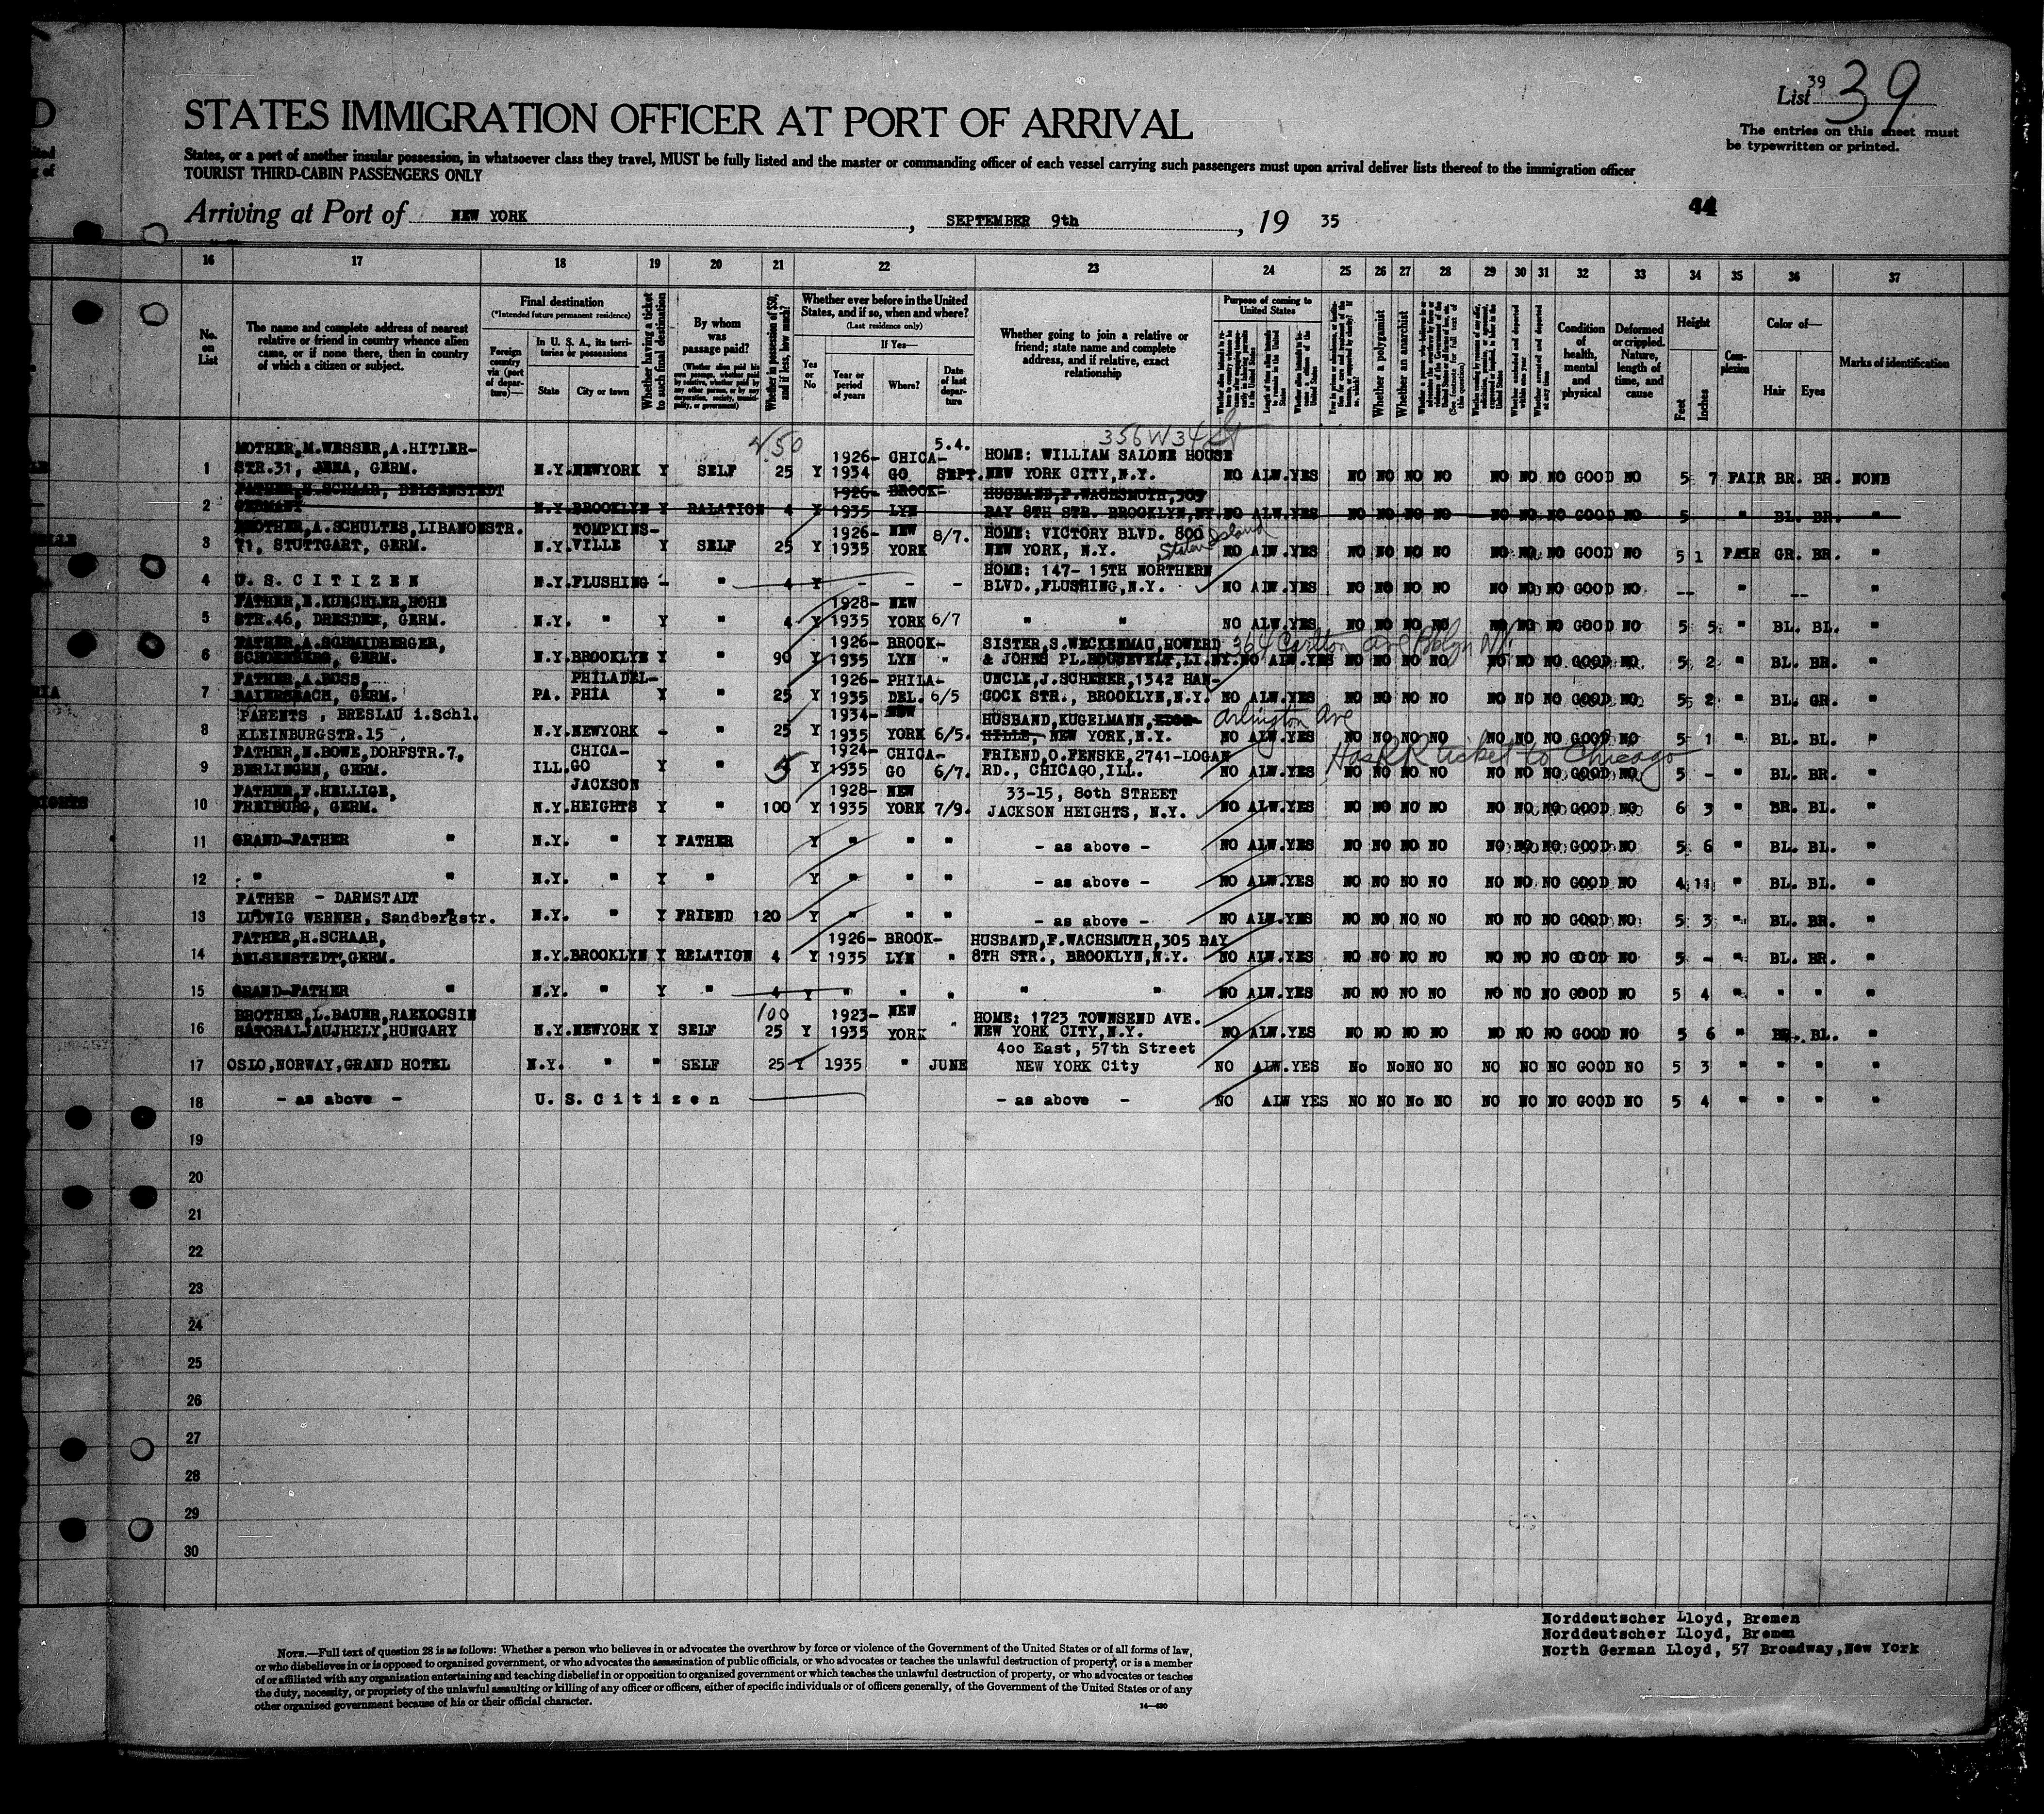 39
List 39
STATES IMMIGRATION OFFICER AT PORT OF ARRIVAL
The entries on this sheet must
be typewritten or printed.
States, or a port of another insular possession, in whatsoever class they travel, MUST be fully listed and the master or commanding officer of each vessel carrying such passengers must upon arrival deliver lists thereof to the immigration officer
TOURIST THIRD-CABIN PASSENGERS ONLY
44
Arriving at Port of NEW YORK, SEPTEMBER 9th, 19 35
16 17 18 19 20 21 22 23 24 25 26 27 28 29 30 31 32 33 34 35 36 37
No. on List
The name and complete address of nearest relative or friend in country whence alien came, or if none there, then in country of which a citizen or subject.
Final destination
(*Intended future permanent residence)
Foreign country via (port of departure)—
In U. S. A., its territories or possessions
State City or town
Whether having a ticket to such final destination
By whom was passage paid?
Whether in possession of $50, and if less, how much?
Whether ever before in the United States, and if so, when and where?
(Last residence only)
Yes or No
If Yes—
Year or period of years
Where?
Date of last departure
Whether going to join a relative or friend; state name and complete address, and if relative, exact relationship
Purpose of coming to United States
Whether a polygamist
Whether an anarchist
Condition of health, mental and physical
Deformed or crippled. Nature, length of time, and cause
Height
Feet Inches
Complexion
Color of—
Hair Eyes
Marks of identification
50 5.4. 356 W 34 St
MOTHER, M. WESSER, A. HITLER- 1926- CHICA- HOME: WILLIAM SALONE HOUSE
1 STR.31, JENA, GERM. N.Y. NEWYORK Y SELF 25 Y 1934 GO SEPT. NEW YORK CITY, N.Y. NO ALW. YES NO NO NO NO NO NO NO GOOD NO 5 7 FAIR BR. BR. NONE
FATHER, H. SCHAAR, BELSENSTEDT 1926- BROOK- HUSBAND, F. WACHSMUTH, 305
2 GERMANY N.Y. BROOKLYN Y RALATION 4 Y 1935 LYN BAY 8TH STR. BROOKLYN, NY. NO ALW. YES NO NO NO NO NO NO NO GOOD NO 5 " BL. BR. "
BROTHER, A. SCHULTES, LIBANONSTR. TOMPKINS- 1926- NEW 8/7. HOME: VICTORY BLVD. 800
3 71, STUTTGART, GERM. N.Y. VILLE Y SELF 25 Y 1935 YORK NEW YORK, N.Y. Staten Island NO ALW. YES NO NO NO NO NO NO NO GOOD NO 5 1 FAIR GR. BR. "
HOME: 147- 15TH NORTHERN
4 U. S. C I T I Z E N N.Y. FLUSHING - " 4 Y - - - BLVD., FLUSHING, N.Y. NO ALW. YES NO NO NO NO NO NO NO GOOD NO -- " -- "
FATHER, E. KUECHLER, HOHE 1928- NEW
5 STR.46, DRESDEN, GERM. N.Y. " Y " 4 Y 1935 YORK 6/7 " " NO ALW. YES NO NO NO NO NO NO NO GOOD NO 5 5 " BL. BL. "
FATHER, A. SCHMIDBERGER, 1926- BROOK- SISTER, S. WECKENMAU, HOWERD 364 Carlton Ave Bklyn NY.
6 GERM. N.Y. BROOKLYN Y " 90 Y 1935 LYN " & JOHNS PL. ROOSEVELT, LI. NY. NO ALW. YES NO NO NO NO NO NO NO GOOD NO 5 2 " BL. BR. "
FATHER, A. BOSS, PHILADEL- 1926- PHILA- UNCLE, J. SCHERER, 1342 HAN-
7 BAIERSBACH, GERM. PA. PHIA Y " 25 Y 1935 DEL. 6/5 COCK STR., BROOKLYN, N.Y. NO ALW. YES NO NO NO NO NO NO NO GOOD NO 5 2 " BL. GR. "
PARENTS , BRESLAU i.Schl. 1934- NEW HUSBAND, KUGELMANN, Arlington Ave
8 KLEINBURGSTR.15 N.Y. NEWYORK - " 25 Y 1935 YORK 6/5. HILLE, NEW YORK, N.Y. NO ALW. YES NO NO NO NO NO NO NO GOOD NO 5 1 " BL. BL. "
FATHER, N. BOWE, DORFSTR.7, CHICA- 1924- CHICA- FRIEND, O. FENSKE, 2741-LOGAN Has RR ticket to Chicago
9 BERLINGEN, GERM. ILL. GO Y " 5 Y 1935 GO 6/7. RD., CHICAGO, ILL. NO ALW. YES NO NO NO NO NO NO NO GOOD NO 5 - " BL. BR. "
FATHER, F. HELLIGE, JACKSON 1928- NEW 33-15, 80th STREET
10 FREIBURG, GERM. N.Y. HEIGHTS Y " 100 Y 1935 YORK 7/9. JACKSON HEIGHTS, N.Y. NO ALW. YES NO NO NO NO NO NO NO GOOD NO 6 3 " BR. BL. "
11 GRAND-FATHER " N.Y. " Y FATHER Y " " " - as above - NO ALW. YES NO NO NO NO NO NO NO GOOD NO 5 6 " BL. BL. "
12 " " N.Y. " Y " Y - as above - NO ALW. YES NO NO NO NO NO NO NO GOOD NO 4 11 " BL. BL. "
FATHER - DARMSTADT
13 LUDWIG WERNER, Sandbergstr. N.Y. " Y FRIEND 120 Y " " " - as above - NO ALW. YES NO NO NO NO NO NO NO GOOD NO 5 3 " BL. BR. "
FATHER, H. SCHAAR, 1926- BROOK- HUSBAND, F. WACHSMUTH, 305 BAY
14 BELSENSTEDT, GERM. N.Y. BROOKLYN Y RELATION 4 Y 1935 LYN " 8TH STR., BROOKLYN, N.Y. NO ALW. YES NO NO NO NO NO NO NO GOOD NO 5 - " BL. BR. "
15 GRAND-FATHER " N.Y. " Y " 4 Y " " " " " NO ALW. YES NO NO NO NO NO NO NO GOOD NO 5 4 " " " "
BROTHER, L. BAUER, RAEKOCSIN 100 1923- NEW HOME: 1723 TOWNSEND AVE.
16 SATORALJAUJHELY, HUNGARY N.Y. NEWYORK Y SELF 25 Y 1935 YORK " NEW YORK CITY, N.Y. NO ALW. YES NO NO NO NO NO NO NO GOOD NO 5 6 " BR. BL. "
400 East, 57th Street
17 OSLO, NORWAY, GRAND HOTEL N.Y. " " SELF 25 Y 1935 " JUNE NEW YORK City NO ALW. YES No No NO NO NO NO NO GOOD NO 5 3 " " " "
18 - as above - U. S. C i t i z e n - as above - NO ALW YES NO NO No NO NO NO NO GOOD NO 5 4 " " " "
19
20
21
22
23
24
25
26
27
28
29
30
Norddeutscher Lloyd, Bremen
Norddeutscher Lloyd, Bremen
North German Lloyd, 57 Broadway, New York
NOTE.—Full text of question 28 is as follows: Whether a person who believes in or advocates the overthrow by force or violence of the Government of the United States or of all forms of law,
or who disbelieves in or is opposed to organized government, or who advocates the assassination of public officials, or who advocates or teaches the unlawful destruction of property, or is a member
of or affiliated with any organization entertaining and teaching disbelief in or opposition to organized government or which teaches the unlawful destruction of property, or who advocates or teaches
the duty, necessity, or propriety of the unlawful assaulting or killing of any officer or officers, either of specific individuals or of officers generally, of the Government of the United States or of any
other organized government because of his or their official character.
14—430